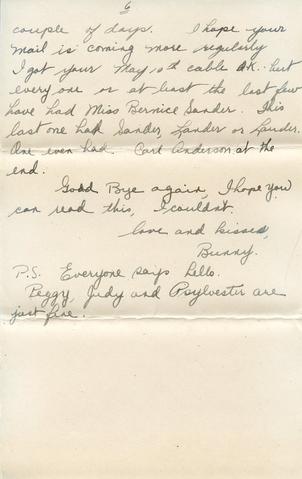 6
couple of days. I hope your
mail is coming more regularly
I got your May 10th cable OK. but
every one or at least the last few
have had Miss Bernice Sander. This
last one had Sander, Zander or Lauder.
One even had Carl Anderson at the
end.
Good Bye again, I hope you
can read this, I couldnt.
love and kisses,
Bunny.
P.S. Everyone says hello.
Peggy, Judy and Psylvester are
just fine.